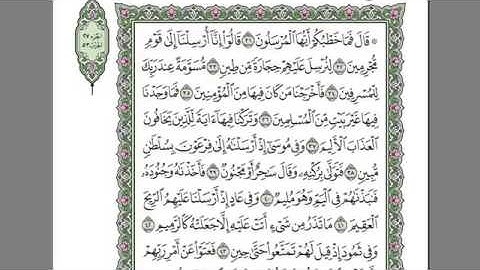 ۞ قَالَ فَمَا خَطۡبُكُمۡ أَيُّهَا ٱلۡمُرۡسَلُونَ ٣١ قَالُوٓاْ إِنَّآ أُرۡسِلۡنَآ إِلَىٰ قَوۡمٖ
مُّجۡرِمِينَ ٣٢ لِنُرۡسِلَ عَلَيۡهِمۡ حِجَارَةٗ مِّن طِينٖ ٣٣ مُّسَوَّمَةً عِندَ رَبِّكَ
لِلۡمُسۡرِفِينَ ٣٤ فَأَخۡرَجۡنَا مَن كَانَ فِيهَا مِنَ ٱلۡمُؤۡمِنِينَ ٣٥ فَمَا وَجَدۡنَا
فِيهَا غَيۡرَ بَيۡتٖ مِّنَ ٱلۡمُسۡلِمِينَ ٣٦ وَتَرَكۡنَا فِيهَآ ءَايَةٗ لِّلَّذِينَ يَخَافُونَ
ٱلۡعَذَابَ ٱلۡأَلِيمَ ٣٧ وَفِي مُوسَىٰٓ إِذۡ أَرۡسَلۡنَٰهُ إِلَىٰ فِرۡعَوۡنَ بِسُلۡطَٰنٖ
مُّبِينٖ ٣٨ فَتَوَلَّىٰ بِرُكۡنِهِۦ وَقَالَ سَٰحِرٌ أَوۡ مَجۡنُونٞ ٣٩ فَأَخَذۡنَٰهُ وَجُنُودَهُۥ
فَنَبَذۡنَٰهُمۡ فِي ٱلۡيَمِّ وَهُوَ مُلِيمٞ ٤٠ وَفِي عَادٍ إِذۡ أَرۡسَلۡنَا عَلَيۡهِمُ ٱلرِّيحَ
ٱلۡعَقِيمَ ٤١ مَا تَذَرُ مِن شَيۡءٍ أَتَتۡ عَلَيۡهِ إِلَّا جَعَلَتۡهُ كَٱلرَّمِيمِ ٤٢
وَفِي ثَمُودَ إِذۡ قِيلَ لَهُمۡ تَمَتَّعُواْ حَتَّىٰ حِينٖ ٤٣ فَعَتَوۡاْ عَنۡ أَمۡرِ رَبِّهِمۡ